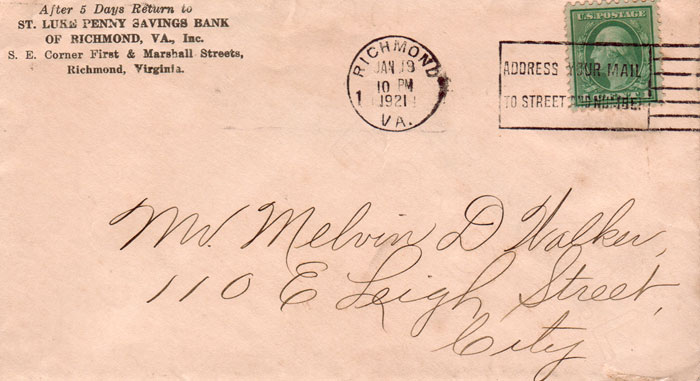 After 5 Days Return to
ST. LUKE PENNY SAVINGS BANK
OF RICHMOND, VA., Inc.
S. E. Corner First & Marshall Streets,
Richmond, Virginia.
RICHMOND
JAN 19
10 PM
1
1921
VA.
ADDRESS YOUR MAIL
TO STREET AND NUMBER
U.S. POSTAGE
Mr. Melvin D Walker,
110 E Leigh Street,
City